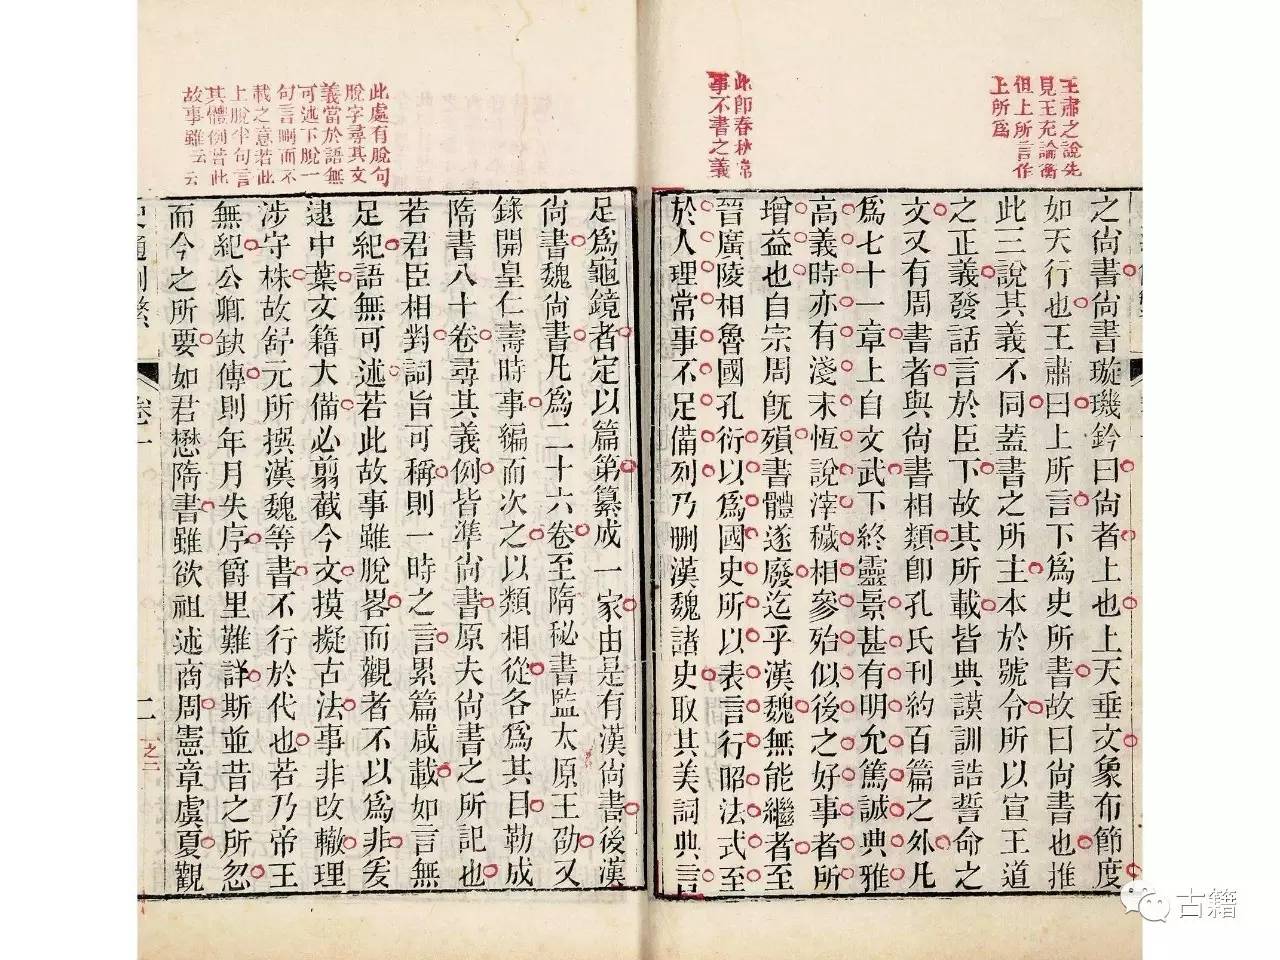 王肅之說先
見王充論衡
但上所言作
上所為
此即春秋常
事不書之義
之尚書尚書璇璣鈐曰尚者上也上天垂文象布節度
如天行也王肅曰上所言下為史所書故曰尚書也推
此三說其義不同蓋書之所主本於號令所以宣王道
之正義發話言於臣下故其所載皆典謨訓誥誓命之
文又有周書者與尚書相類即孔氏刊約百篇之外凡
為七十一章上自文武下終靈景甚有明允篤誠典雅
高義時亦有淺末恆說滓穢相參殆似後之好事者所
增益也自宗周既殞書體遂廢迄乎漢魏無能繼者至
晉廣陵相魯國孔衍以為國史所以表言行昭法式至
於人理常事不足備列乃刪漢魏諸史取其美詞典言
此處有脫句
脫字尋其文
義當於語無
可述下脫一
句言略而不
載之意若此
上脫半句言
其體例皆此
故事雖云云
足為龜鏡者定以篇第纂成一家由是有漢尚書後漢
尚書魏尚書凡為二十六卷至隋秘書監太原王劭又
錄開皇仁壽時事編而次之以類相從各為其目勒成
隋書八十卷尋其義例皆準尚書原夫尚書之所記也
若君臣相對詞旨可稱則一時之言累篇咸載如言無
足紀語無可述若此故事雖脫畧而觀者不以為非爰
逮中葉文籍大備必翦截今文摸擬古法事非改轍理
涉守株故舒元所撰漢魏等書不行於代也若乃帝王
無紀公卿缺傳則年月失序爵里難詳斯並昔之所忽
而今之所要如君懋隋書雖欲祖述商周憲章虞夏觀
卷一
二
之二
古籍